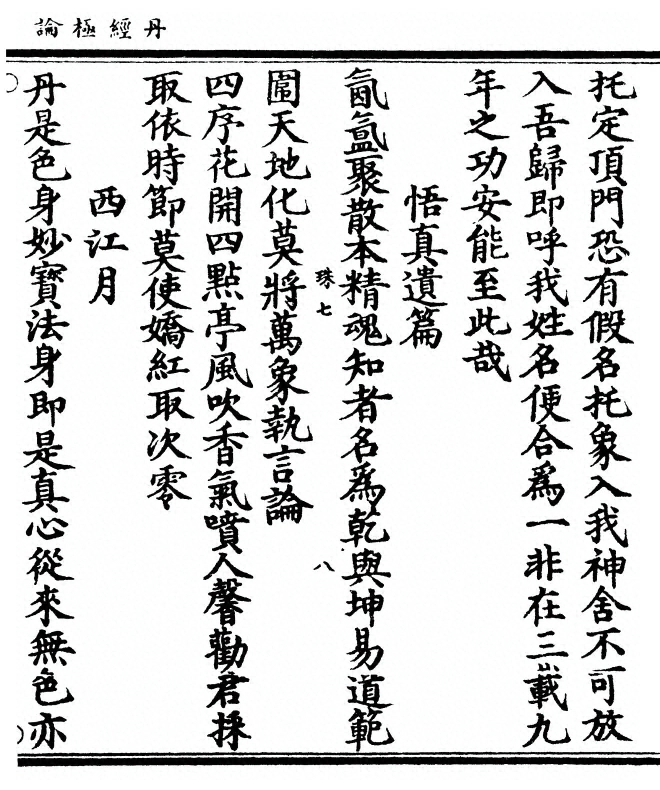 丹經極論
托定頂門恐有假名托象入我神舍不可放
入吾歸即呼我姓名便合爲一非在三載九
年之功安能至此哉
悟真遺篇
氤氳聚散本精魂知者名爲乾與坤易道範
珠七
八
圍天地化莫將萬象執言論
四序花開四點亭風吹香氣噴人馨勸君採
取依時節莫使嬌紅取次零
西江月
丹是色身妙寶法身即是真心從來無色亦